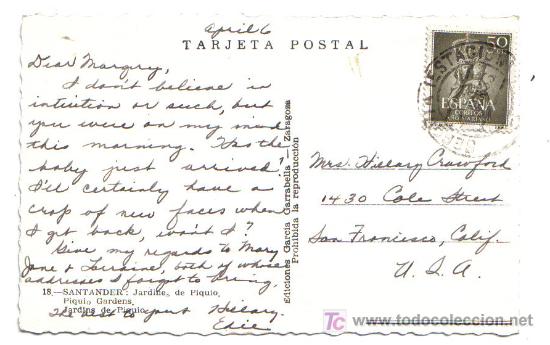 April 6
TARJETA POSTAL
Dear Margiry,
I don't believe in
intuition or such, but
you were on my mind
this morning. Has the
baby just arrived?
I'll certainly have a
crop of new faces when
I get back, won't I?
Give my regards to Mary
Jane & Lorraine, both of whose
addresses I forgot to bring.
18.—SANTANDER: Jardine, de Piquío,
Piquio Gardens,
Jardins de Piquio
The best to your Hillary.
Edie
Ediciones García Garrabella — Zaragoza
Prohibida la reproducción
50
ESPAÑA
CORREOS
AÑO MARIANO
ESTACION
Mrs. Hillary Crawford
1430 Cole Street
San Francisco, Calif.
U.S.A.
TC www.todocoleccion.net